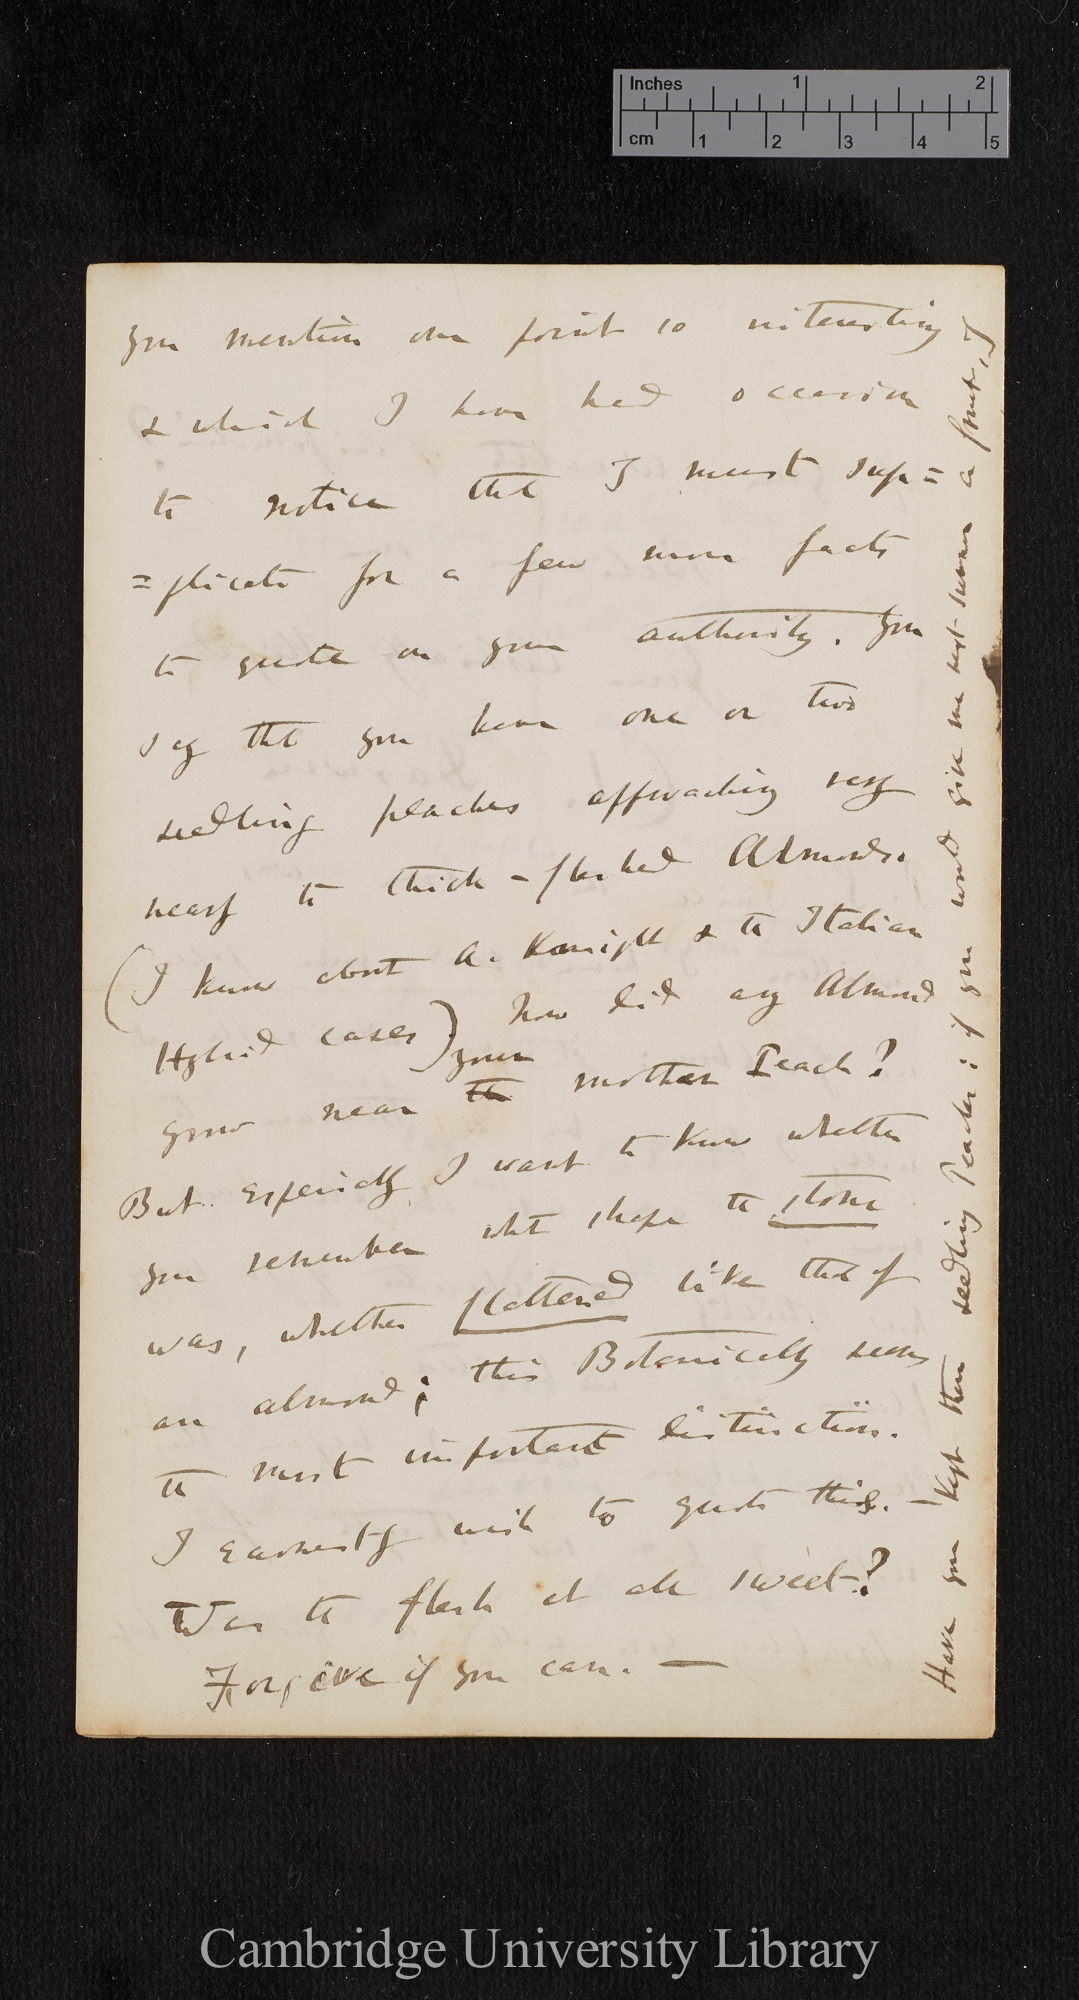 Inches 1 2
cm 1 2 3 4 5
you mention one point so interesting
& which I have had occasion
to notice that I must sup=
=plicate for a few more facts
to quote on your authority. You
say that you have one or two
seedling peaches approaching very
nearly to thick-fleshed Almonds.
(I know about A. Knight & the Italian
Hybrid cases) how did any Almond
your
grow near the mother Peach?
But especially I want to know whether
you remember what shape the stone
was, whether flattened like that of
an almond; this Botanically seems
the most important distinction.
I earnestly wish to quote this. —
Was the flesh at all sweet?
Forgive if you can. —
Have you kept these seedling Peaches: if you would give me next summer a fruit, I
Cambridge University Library